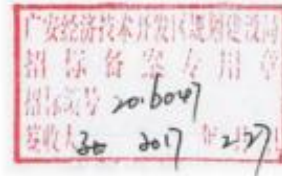 广安经济技术开发区规划建设局
招标备案专用章
招标编号 2016047
签收人 2017年2月27日